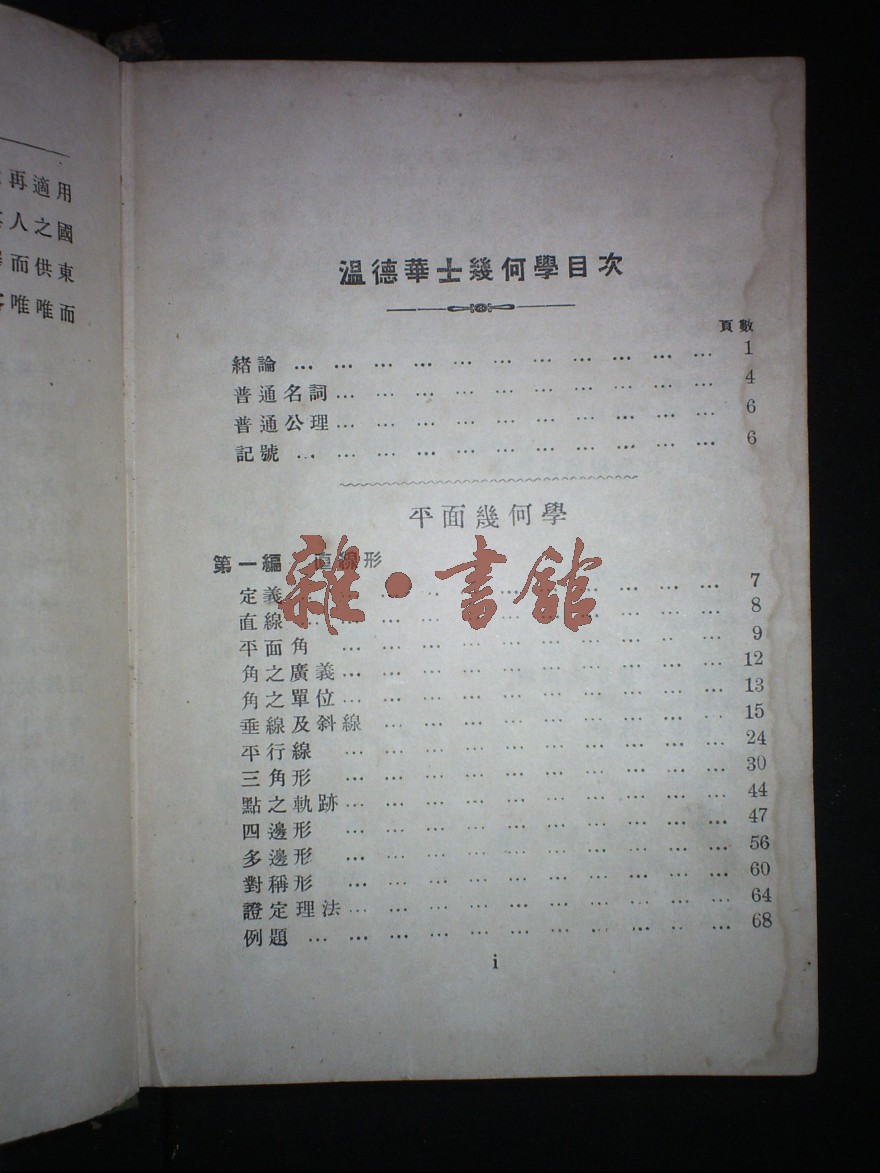 再適用
人之國
而供東
唯唯而
溫德華士幾何學目次
頁數
緒論 … … … … … … … … … … … 1
普通名詞… … … … … … … … … … 4
普通公理… … … … … … … … … … 6
記號 … … … … … … … … … … … 6
平面幾何學
第一編 直線形
定義 … … … … … … … … … … 7
直線 … … … … … … … … … … 8
平面角 … … … … … … … … … … 9
角之廣義… … … … … … … … … … 12
角之單位… … … … … … … … … … 13
垂線及斜線 … … … … … … … … … 15
平行線 … … … … … … … … … … 24
三角形 … … … … … … … … … … 30
點之軌跡… … … … … … … … … … 44
四邊形 … … … … … … … … … … 47
多邊形 … … … … … … … … … … 56
對稱形 … … … … … … … … … … 60
證定理法… … … … … … … … … … 64
例題 … … … … … … … … … … … 68
i
雜·書館